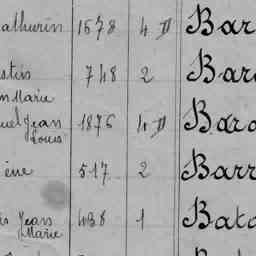 athurin 1578 4 D Bar
stin 748 2 Bar
n Marie
uel Jean 1876 4 D Bar
Louis
ène 517 2 Barr
is Jean 438 1 Bato
Marie